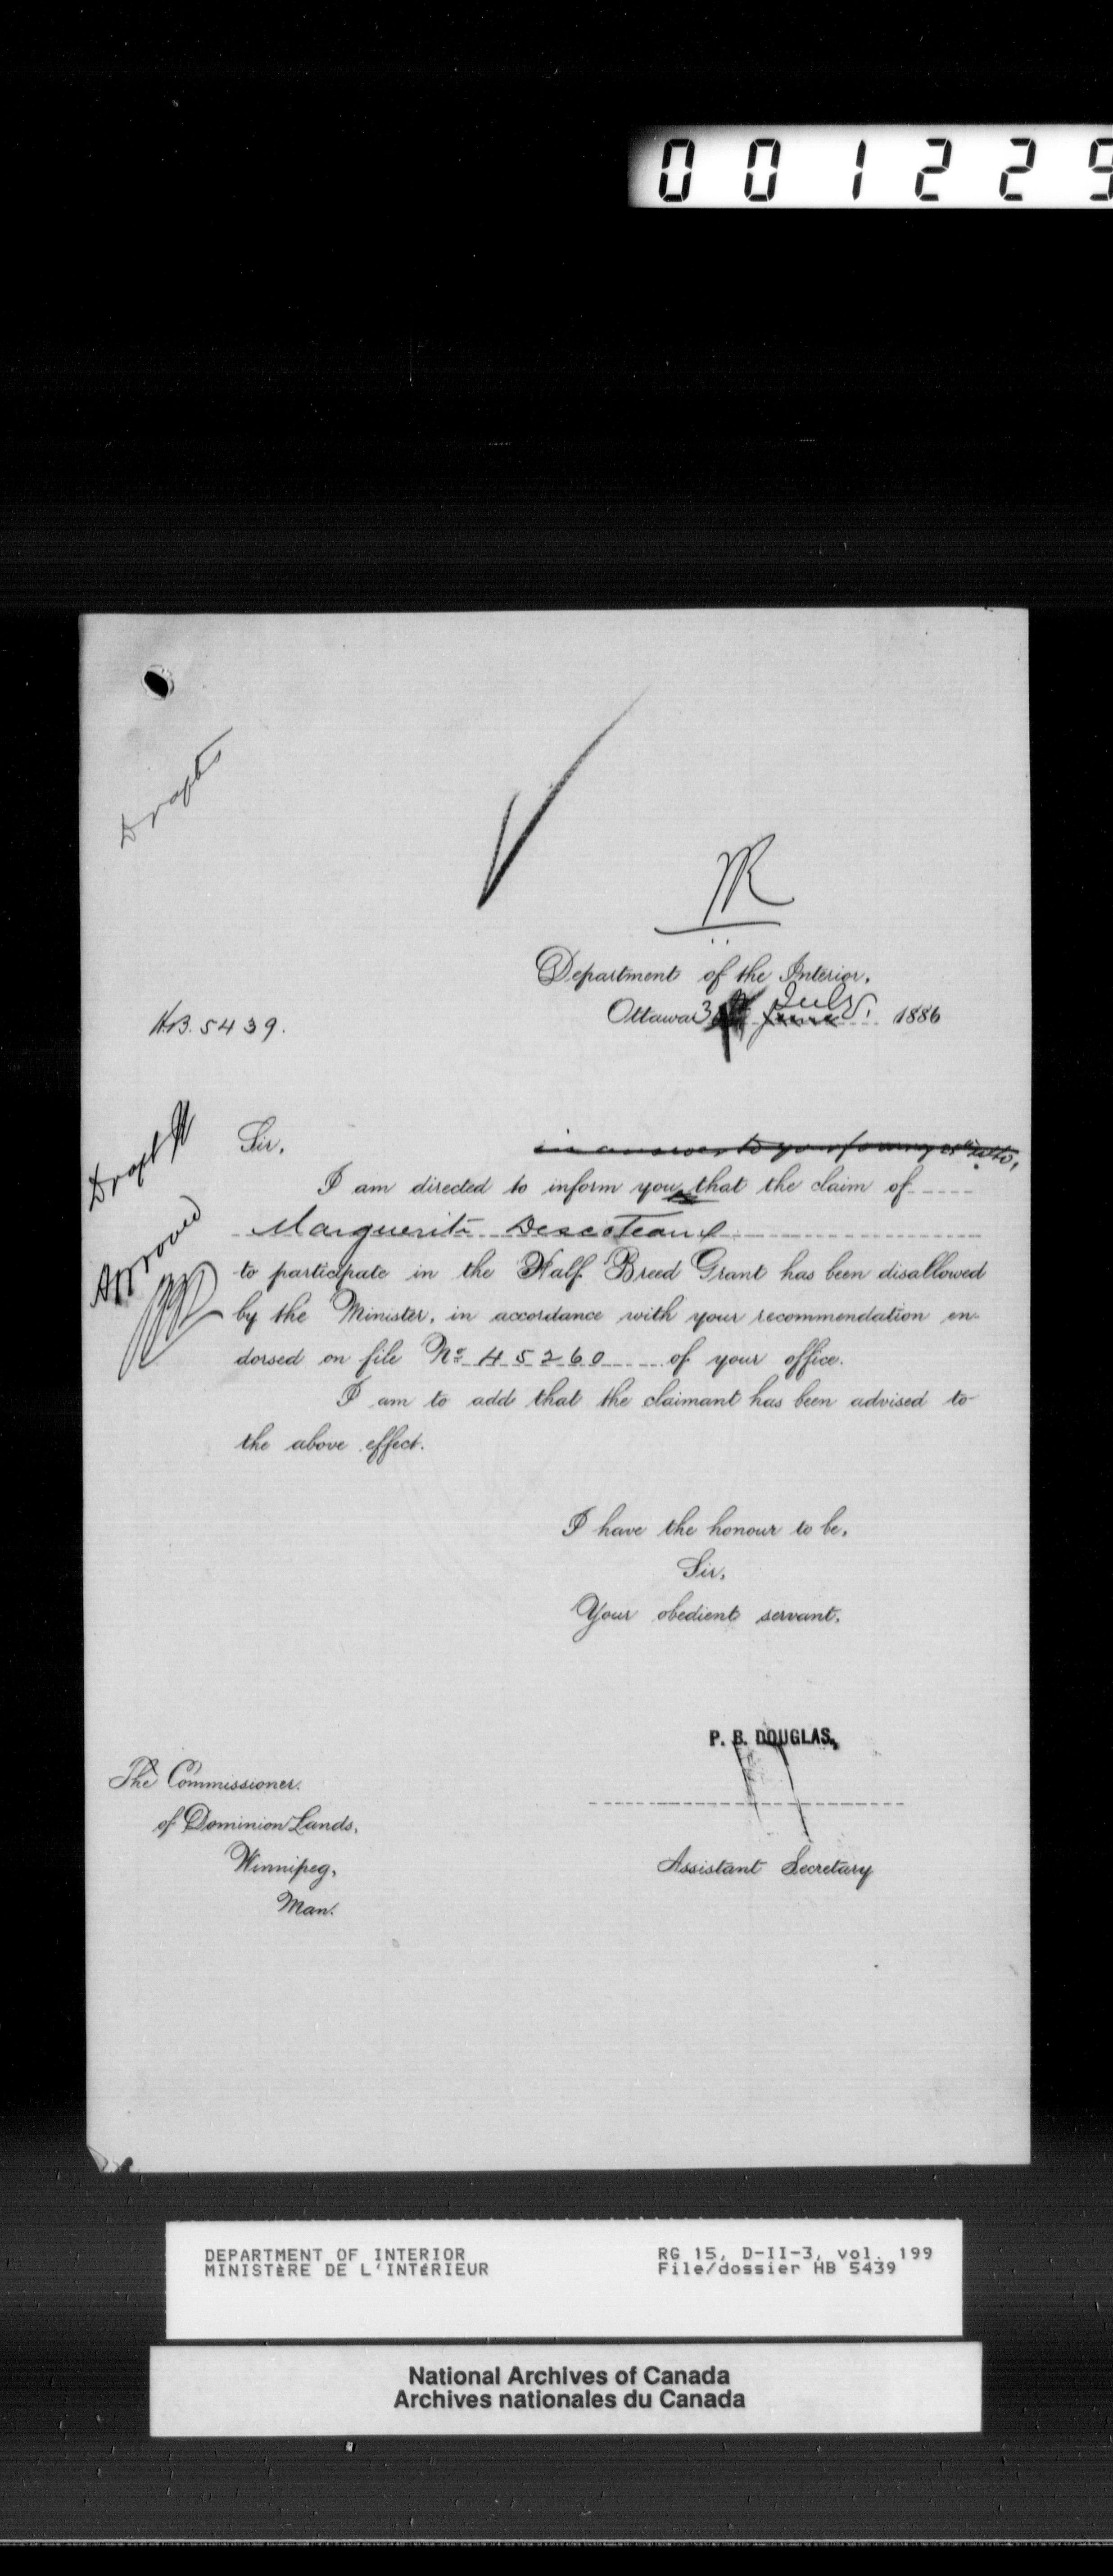 001229
Drafts
Department of the Interior,
Ottawa 3 July 1886
HB. 5439.
Draft
Approved
Sir,
in answer to your of
I am directed to inform you that the claim of
Marguerite Descoteaux
to participate in the Half Breed Grant has been disallowed
by the Minister, in accordance with your recommendation en-
dorsed on file No 45260 of your office.
I am to add that the claimant has been advised to
the above effect.
I have the honour to be,
Sir,
Your obedient servant,
P. B. DOUGLAS,
Assistant Secretary
The Commissioner
of Dominion Lands,
Winnipeg,
Man.
DEPARTMENT OF INTERIOR
MINISTÈRE DE L'INTÉRIEUR
RG 15, D-II-3, vol. 199
File/dossier HB 5439
National Archives of Canada
Archives nationales du Canada